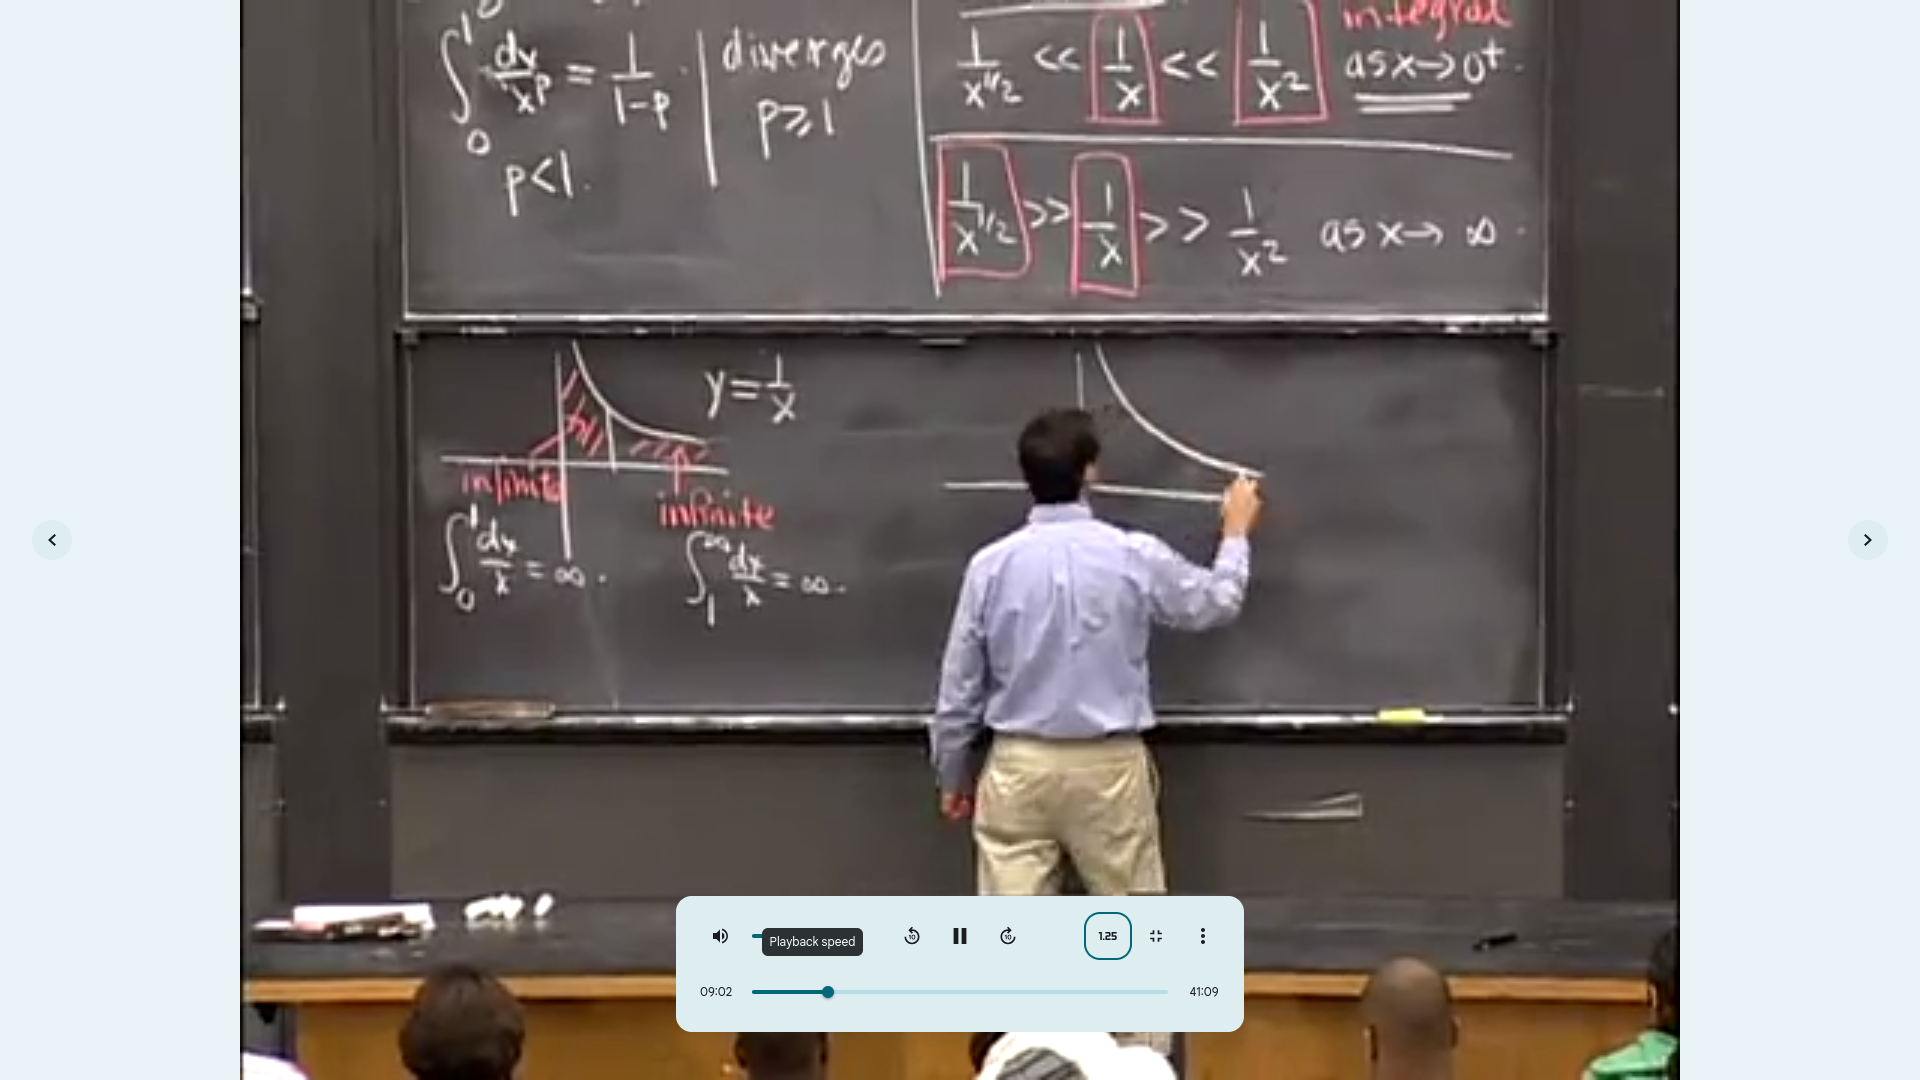 ∫₀¹ dx/x^p = 1/(1-p) | diverges
p<1. p≥1
integral
1/x^(1/2) << 1/x << 1/x² as x→0⁺.
1/x^(1/2) >> 1/x >> 1/x² as x→∞.
y=1/x
infinite
infinite
∫₀¹ dx/x = ∞.
∫₁^∞ dx/x = ∞.
Playback speed
10
10
1.25
09:02
41:09